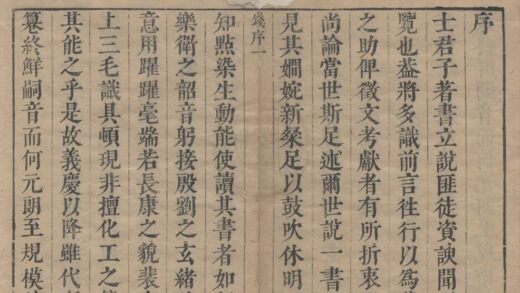 序
士君子著書立說匪徒資諛聞
覽也葢將多識前言徃行以為
之助俾徵文考獻者有所折衷
尚論當世斯足述爾世說一書
見其嫺婉新粲足以鼓吹休明
錢序一
知點染生動能使讀其書者如
樂衛之韶音躬接殷劉之玄緒
意用躍躍毫端若長康之貌裴
上三毛識具頓現非擅化工之
其能之乎是故義慶以降雖代
纂終鮮嗣音而何元朗至規模